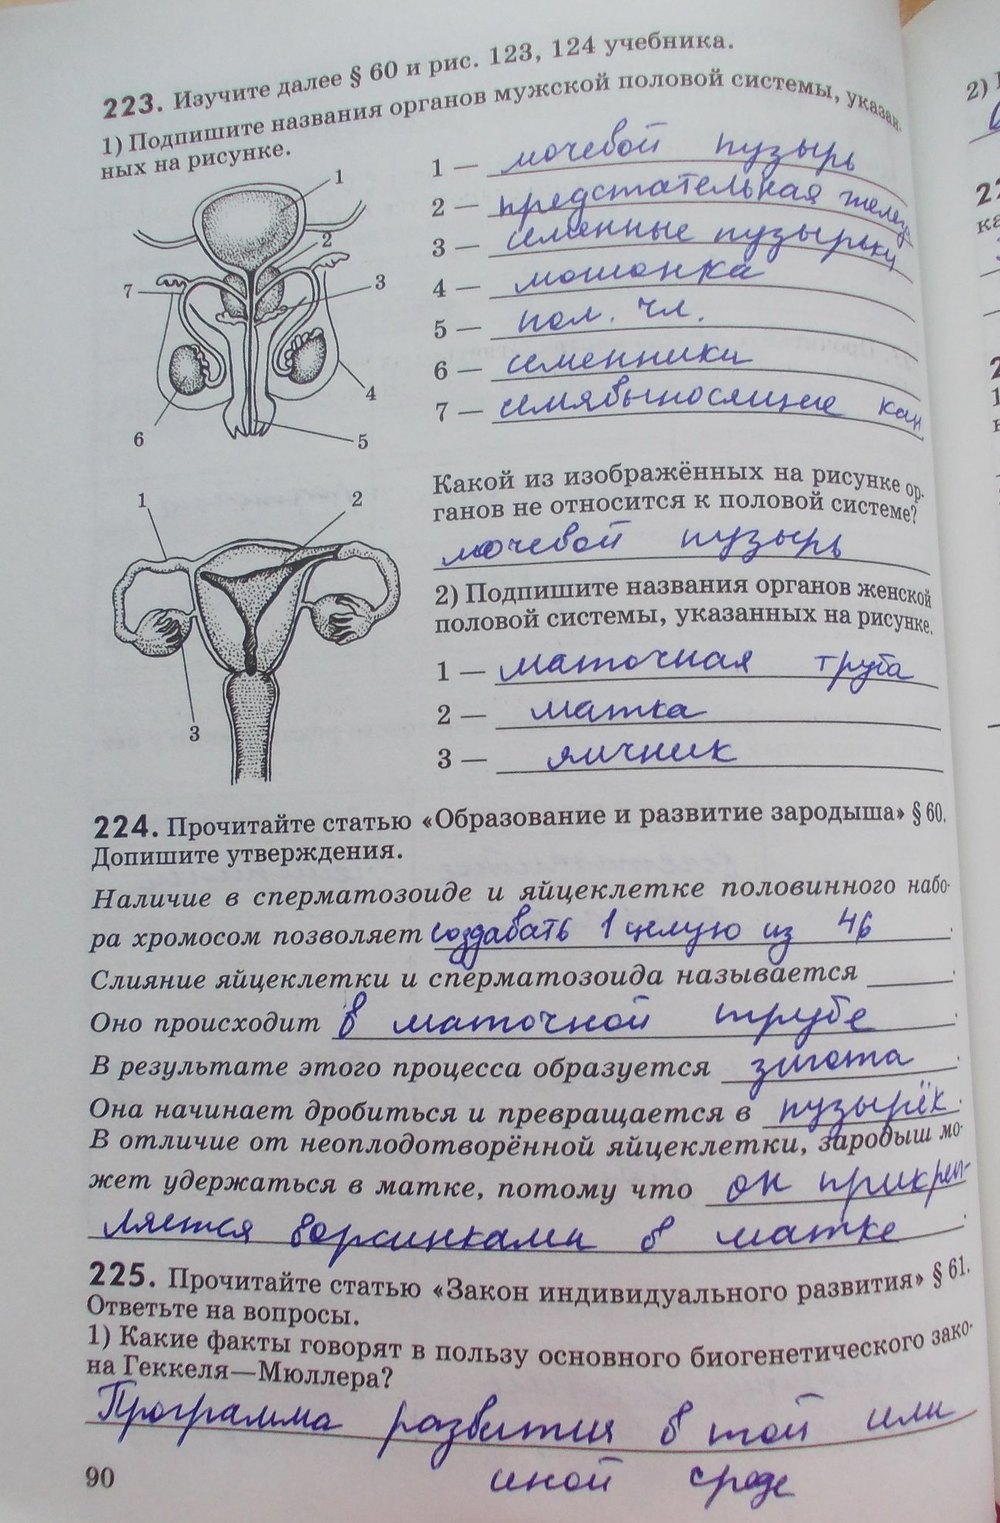 223. Изучите далее § 60 и рис. 123, 124 учебника.
1) Подпишите названия органов мужской половой системы, указан-
ных на рисунке.
1
2
3
7
4
6
5
1 — мочевой пузырь
2 — предстательная железа
3 — семенные пузырьки
4 — мошонка
5 — пол. чл.
6 — семенники
7 — семявыносящие кан
Какой из изображённых на рисунке ор-
ганов не относится к половой системе?
мочевой пузырь
1
2
3
2) Подпишите названия органов женской
половой системы, указанных на рисунке.
1 — маточная труба
2 — матка
3 — яичник
224. Прочитайте статью «Образование и развитие зародыша» § 60.
Допишите утверждения.
Наличие в сперматозоиде и яйцеклетке половинного набо-
ра хромосом позволяет создавать 1 целую из 46.
Слияние яйцеклетки и сперматозоида называется ____.
Оно происходит в маточной трубе.
В результате этого процесса образуется зигота.
Она начинает дробиться и превращается в пузырёк.
В отличие от неоплодотворённой яйцеклетки, зародыш мо-
жет удержаться в матке, потому что он прикреп-
ляется ворсинками в матке.
225. Прочитайте статью «Закон индивидуального развития» § 61.
Ответьте на вопросы.
1) Какие факты говорят в пользу основного биогенетического зако-
на Геккеля—Мюллера?
Программа развития в той или
иной среде
90
2)